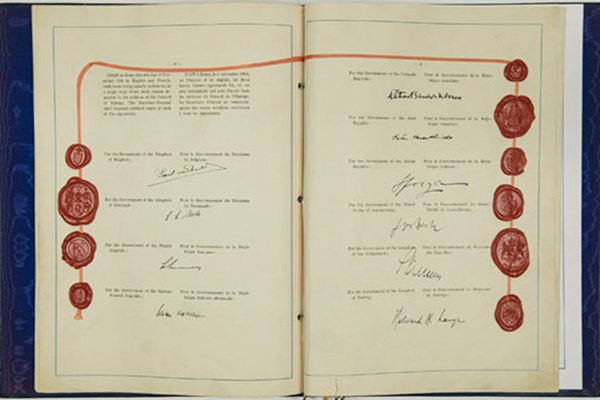 DONE at Rome this 4th day of No-
vember 1950 in English and French,
both texts being equally authentic, in
a single copy which shall remain de-
posited in the archives of the Council
of Europe. The Secretary-General
shall transmit certified copies to each
of the signatories.
FAIT à Rome, le 4 novembre 1950,
en français et en anglais, les deux
textes faisant également foi, en un
seul exemplaire qui sera déposé dans
les archives du Conseil de l'Europe.
Le Secrétaire Général en communi-
quera des copies certifiées conformes
à tous les signataires.
For the Government of the Kingdom
of Belgium:
Pour le Gouvernement du Royaume
de Belgique:
For the Government of the Kingdom
of Denmark
Pour le Gouvernement du Royaume
de Danemark:
For the Government of the French
Republic:
Pour le Gouvernement de la Répu-
blique française:
For the Government of the German
Federal Republic:
Pour le Gouvernement de la Répu-
blique fédérale allemande:
For the Government of the Icelandic
Republic:
Pour le Gouvernement de la Répu-
blique islandaise:
For the Government of the Irish
Republic:
Pour le Gouvernement de la Répu-
blique irlandaise:
For the Government of the Italian
Republic:
Pour le Gouvernement de la Répu-
blique italienne:
Sforza
For the Government of the Grand
Duchy of Luxembourg:
Pour le Gouvernement du Grand-
Duché de Luxembourg:
For the Government of the Kingdom
of the Netherlands:
Pour le Gouvernement du Royaume
des Pays-Bas:
For the Government of the Kingdom
of Norway:
Pour le Gouvernement du Royaume
de Norvège:
Halvard M. Lange